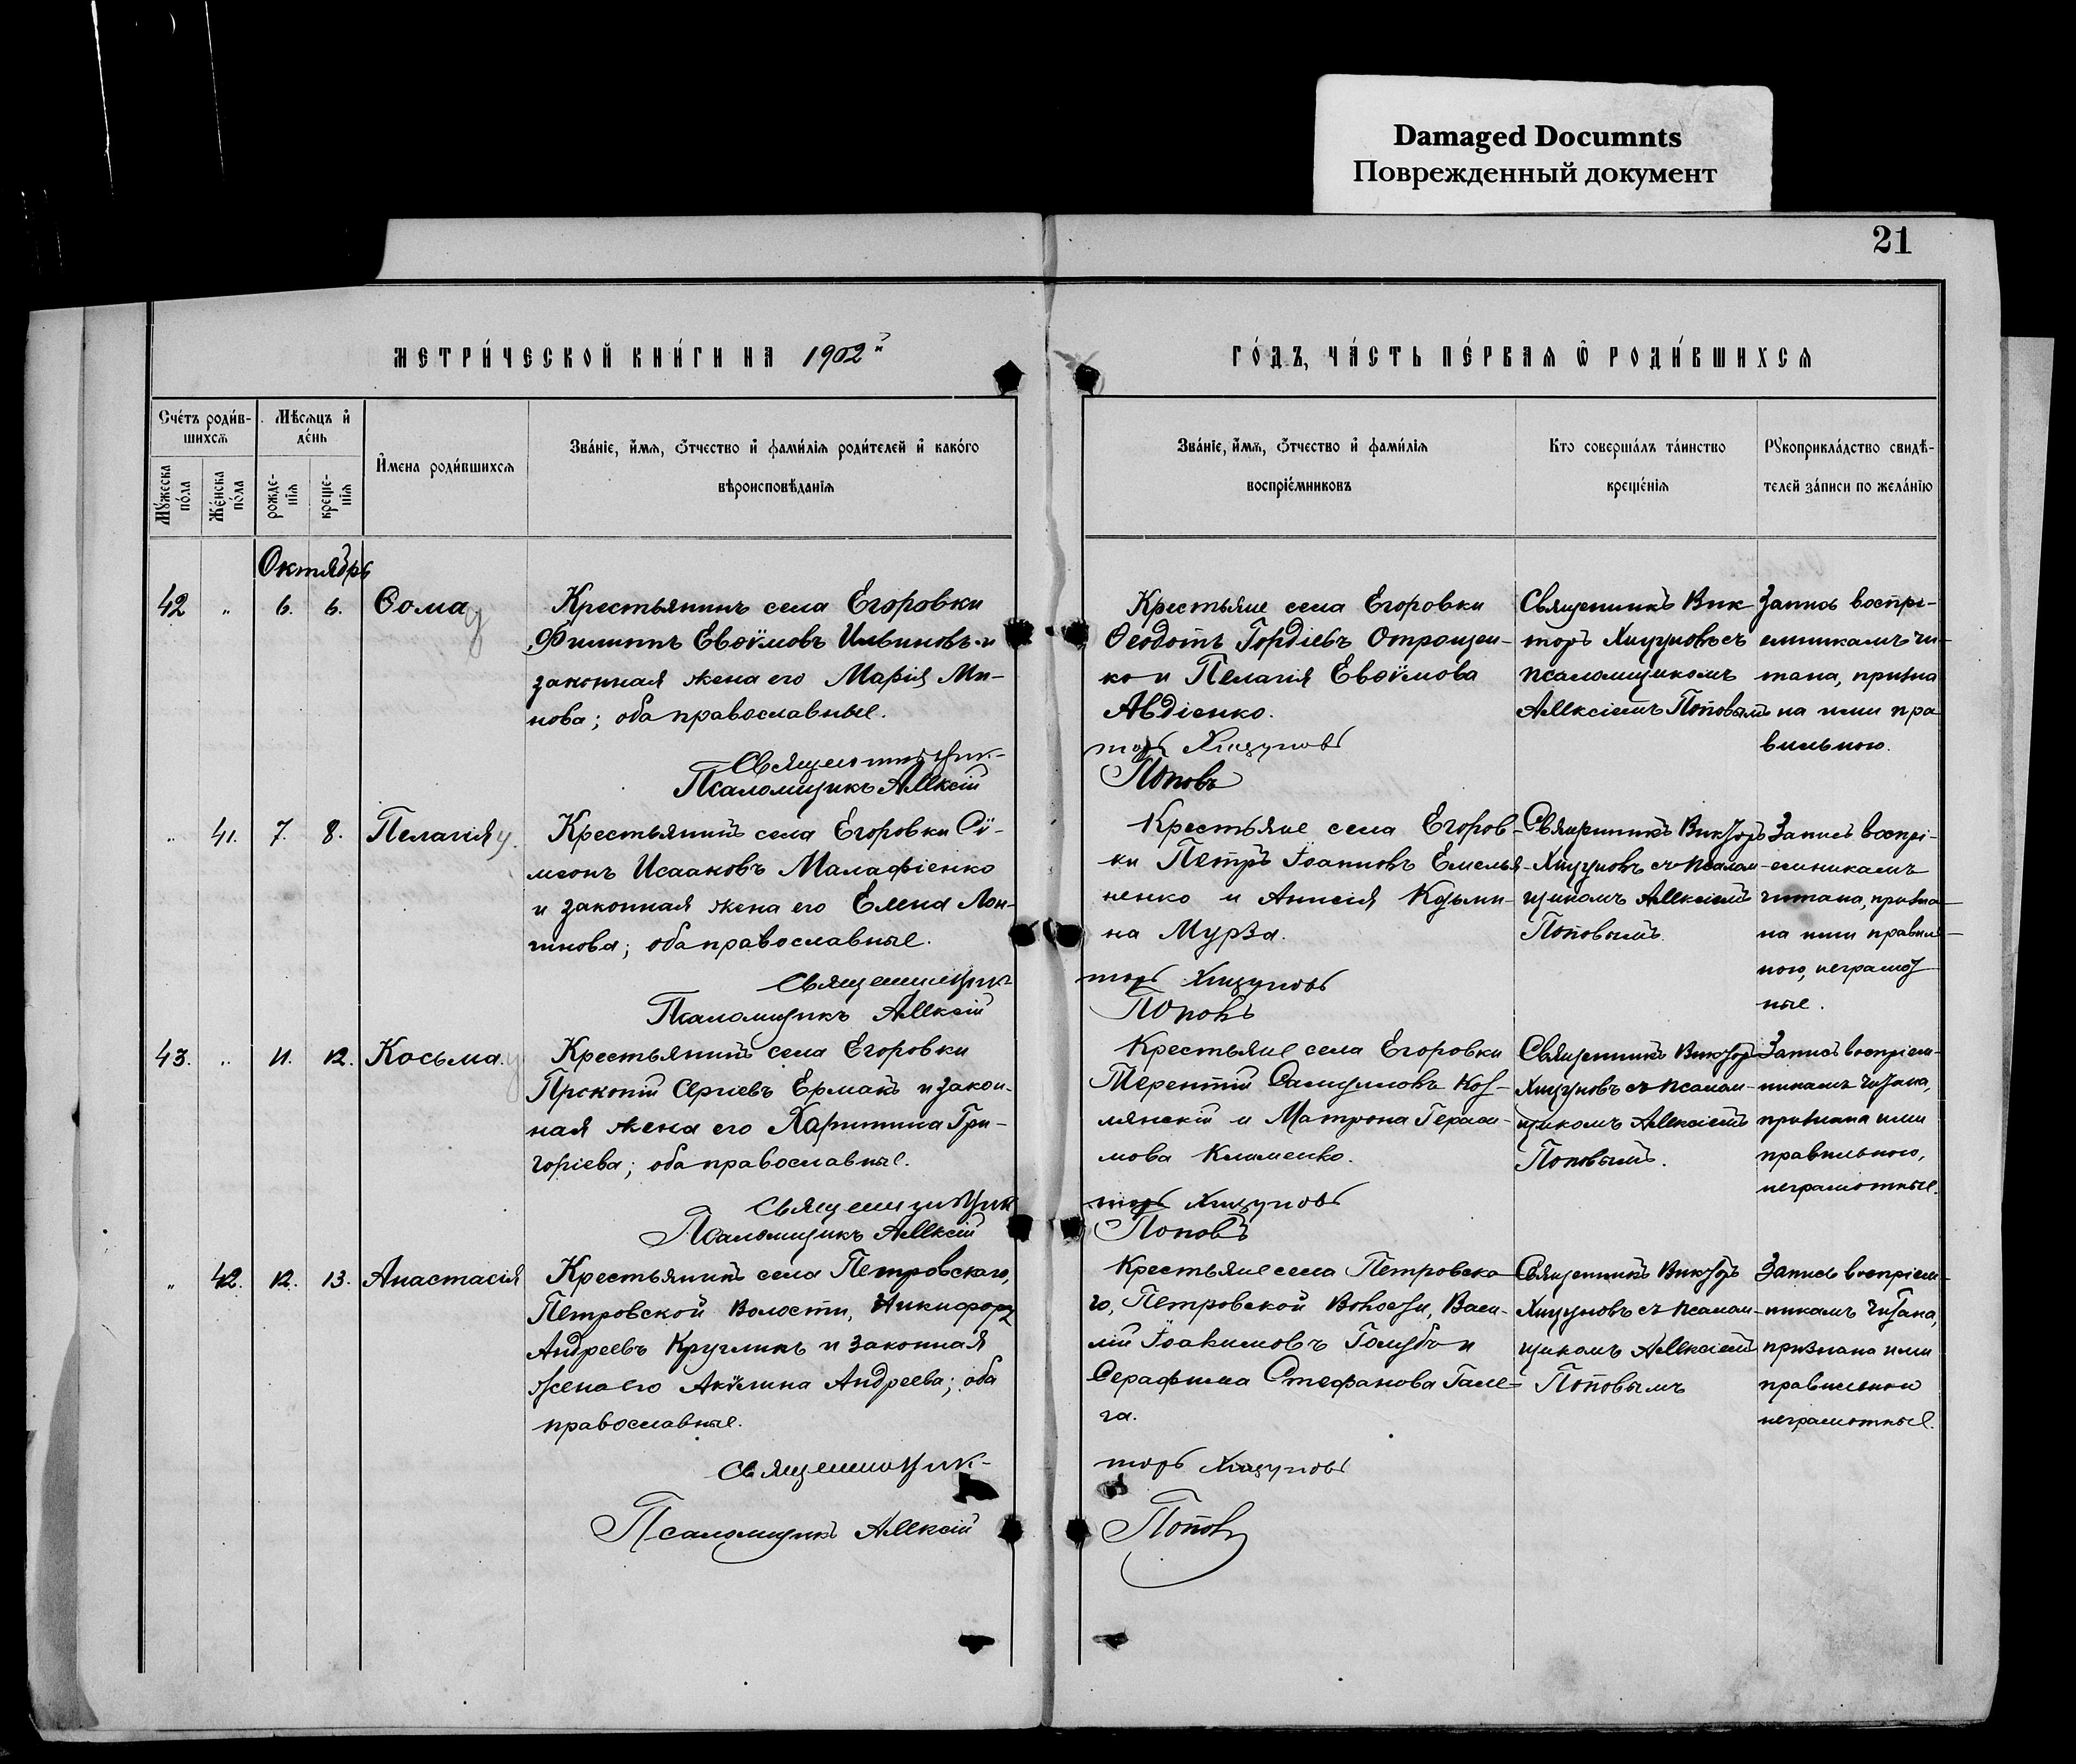 Damaged Documnts
Поврежденный документ
21
МЕТРИ́ЧЕСКОЙ КНИ́ГИ НА 1902й
ГО́ДЪ, ЧА́СТЬ ПЕ́РВАѦ Ѡ҆ РОДИ́ВШИХСѦ
Сче́тъ роди́в-
шихсѧ
Мѣ́сѧцъ и҆
де́нь
Му́жеска
по́ла
Же́нска
по́ла
рожде-
нїѧ
креще-
нїѧ
И҆мена роди́вшихсѧ
Зва́нїе, и҆́мѧ, ѻ҆́тчество и҆ фами́лїѧ роди́телей и҆ како́го
вѣроисповѣ́данїѧ
Зва́нїе, и҆́мѧ, ѻ҆́тчество и҆ фами́лїѧ
воспрїе́мниковъ
Кто соверша́лъ та́инство
креще́нїѧ
Рꙋкоприкла́дство свидѣ́-
телей за́писи по жела́нїю
Октябрь
42 „ 6. 6. Ѳома
Крестьянинъ села Егоровки
Филиппъ Евѳѵмовъ Ильиновъ и
законная жена его Марія Ми-
нова; оба православные.
Священникъ Вик-
Псаломщикъ Алексій
Крестьяне села Егоровки
Ѳеодотъ Гордіевъ Отрощен-
ко и Пелагія Евѳѵмова
Авдіенко.
торъ Хицуновъ
Поповъ
Священникъ Вик
торъ Хицуновъ съ
псаломщикомъ
Алексіемъ Поповымъ
Запись воспрі-
емникамъ чи-
тана, призна
на ими пра
вильною.
„ 41. 7. 8. Пелагія
Крестьянинъ села Егоровки Сѵ-
меонъ Исааковъ Малафіенко
и законная жена его Елена Лон-
гинова; оба православные.
Священникъ Вик
Псаломщикъ Алексій
Крестьяне села Егоров-
ки Петръ Іоанновъ Емелья-
ненко и Анисія Кузьми-
на Мурза.
торъ Хицуновъ
Поповъ
Священникъ Викторъ
Хицуновъ съ псалом-
щикомъ Алексіемъ
Поповымъ.
Запись воспрі-
емникамъ
читана, призна-
на ими правиль-
ною, неграмот
ные.
43. „ 11. 12. Косьма.
Крестьянинъ села Егоровки
Прокопій Сергіевъ Ермакъ и закон-
ная жена его Харитина Гри-
горіева; оба православные.
Священникъ Вик
Псаломщикъ Алексій
Крестьяне села Егоровки
Терентій
и Матрона Гераси-
мова Клименко.
торъ Хицуновъ
Поповъ
Священникъ Викторъ
Хицуновъ съ псалом-
щикомъ Алексіемъ
Поповымъ.
Запись воспріем-
никамъ читана,
признана ими
правильною,
неграмотные.
„ 42. 12. 13. Анастасія
Крестьянинъ села Петровскаго,
Петровской волости, Никифоръ
Андреевъ Кругликъ и законная
жена его Акѵлина Андреева; оба
православные.
Священникъ Вик-
Псаломщикъ Алексій
Крестьяне села Петровска-
го, Петровской волости, Васи-
лій Іоакимовъ Голубъ и
Серафима Стефанова Гале-
га.
торъ Хицуновъ
Поповъ
Священникъ Викторъ
Хицуновъ съ псалом-
щикомъ Алексіемъ
Поповымъ
Запись воспріем-
никамъ читана,
признана ими
правильною
неграмотные.